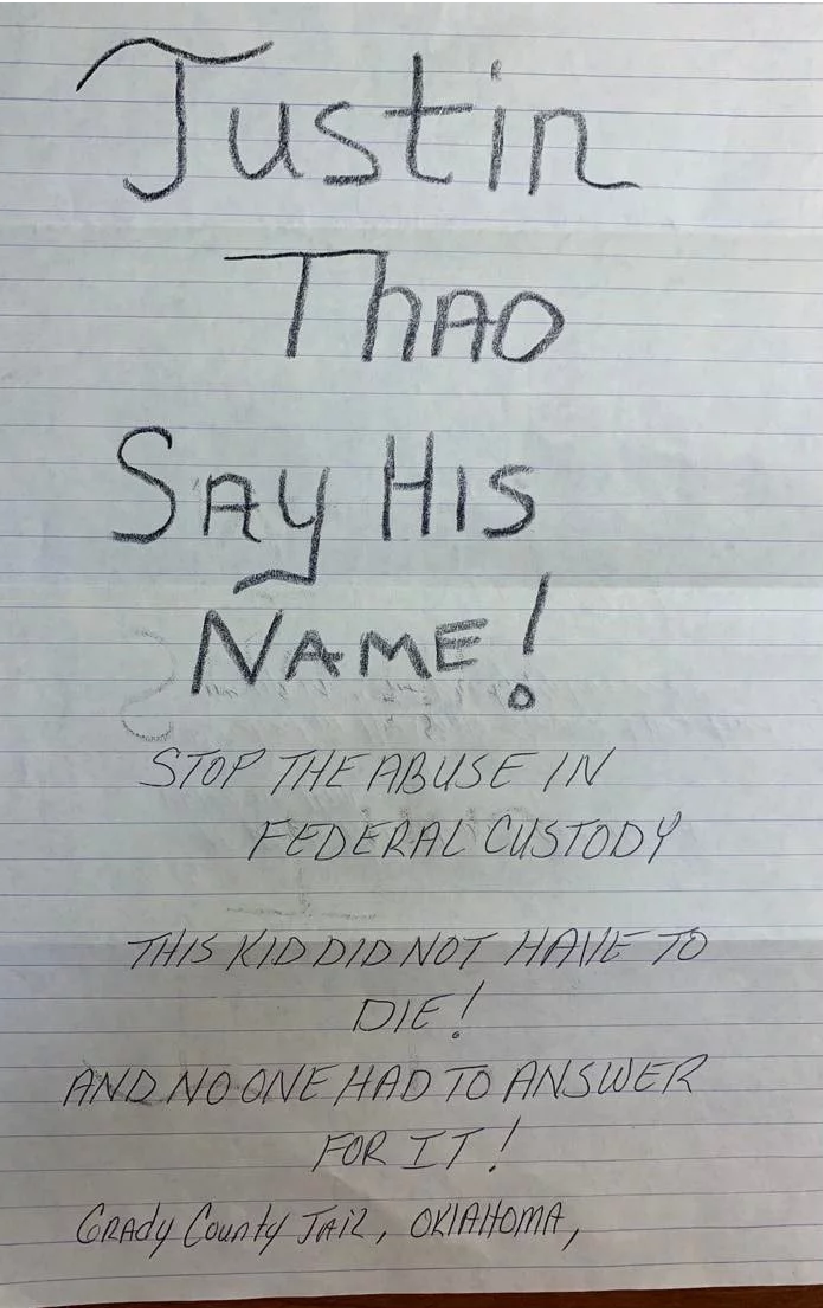 Justin
Thao
SAY HIS
NAME!
STOP THE ABUSE IN
FEDERAL CUSTODY
THIS KID DID NOT HAVE TO
DIE!
AND NO ONE HAD TO ANSWER
FOR IT!
GRAdy County JAil, OKlAHOMA,